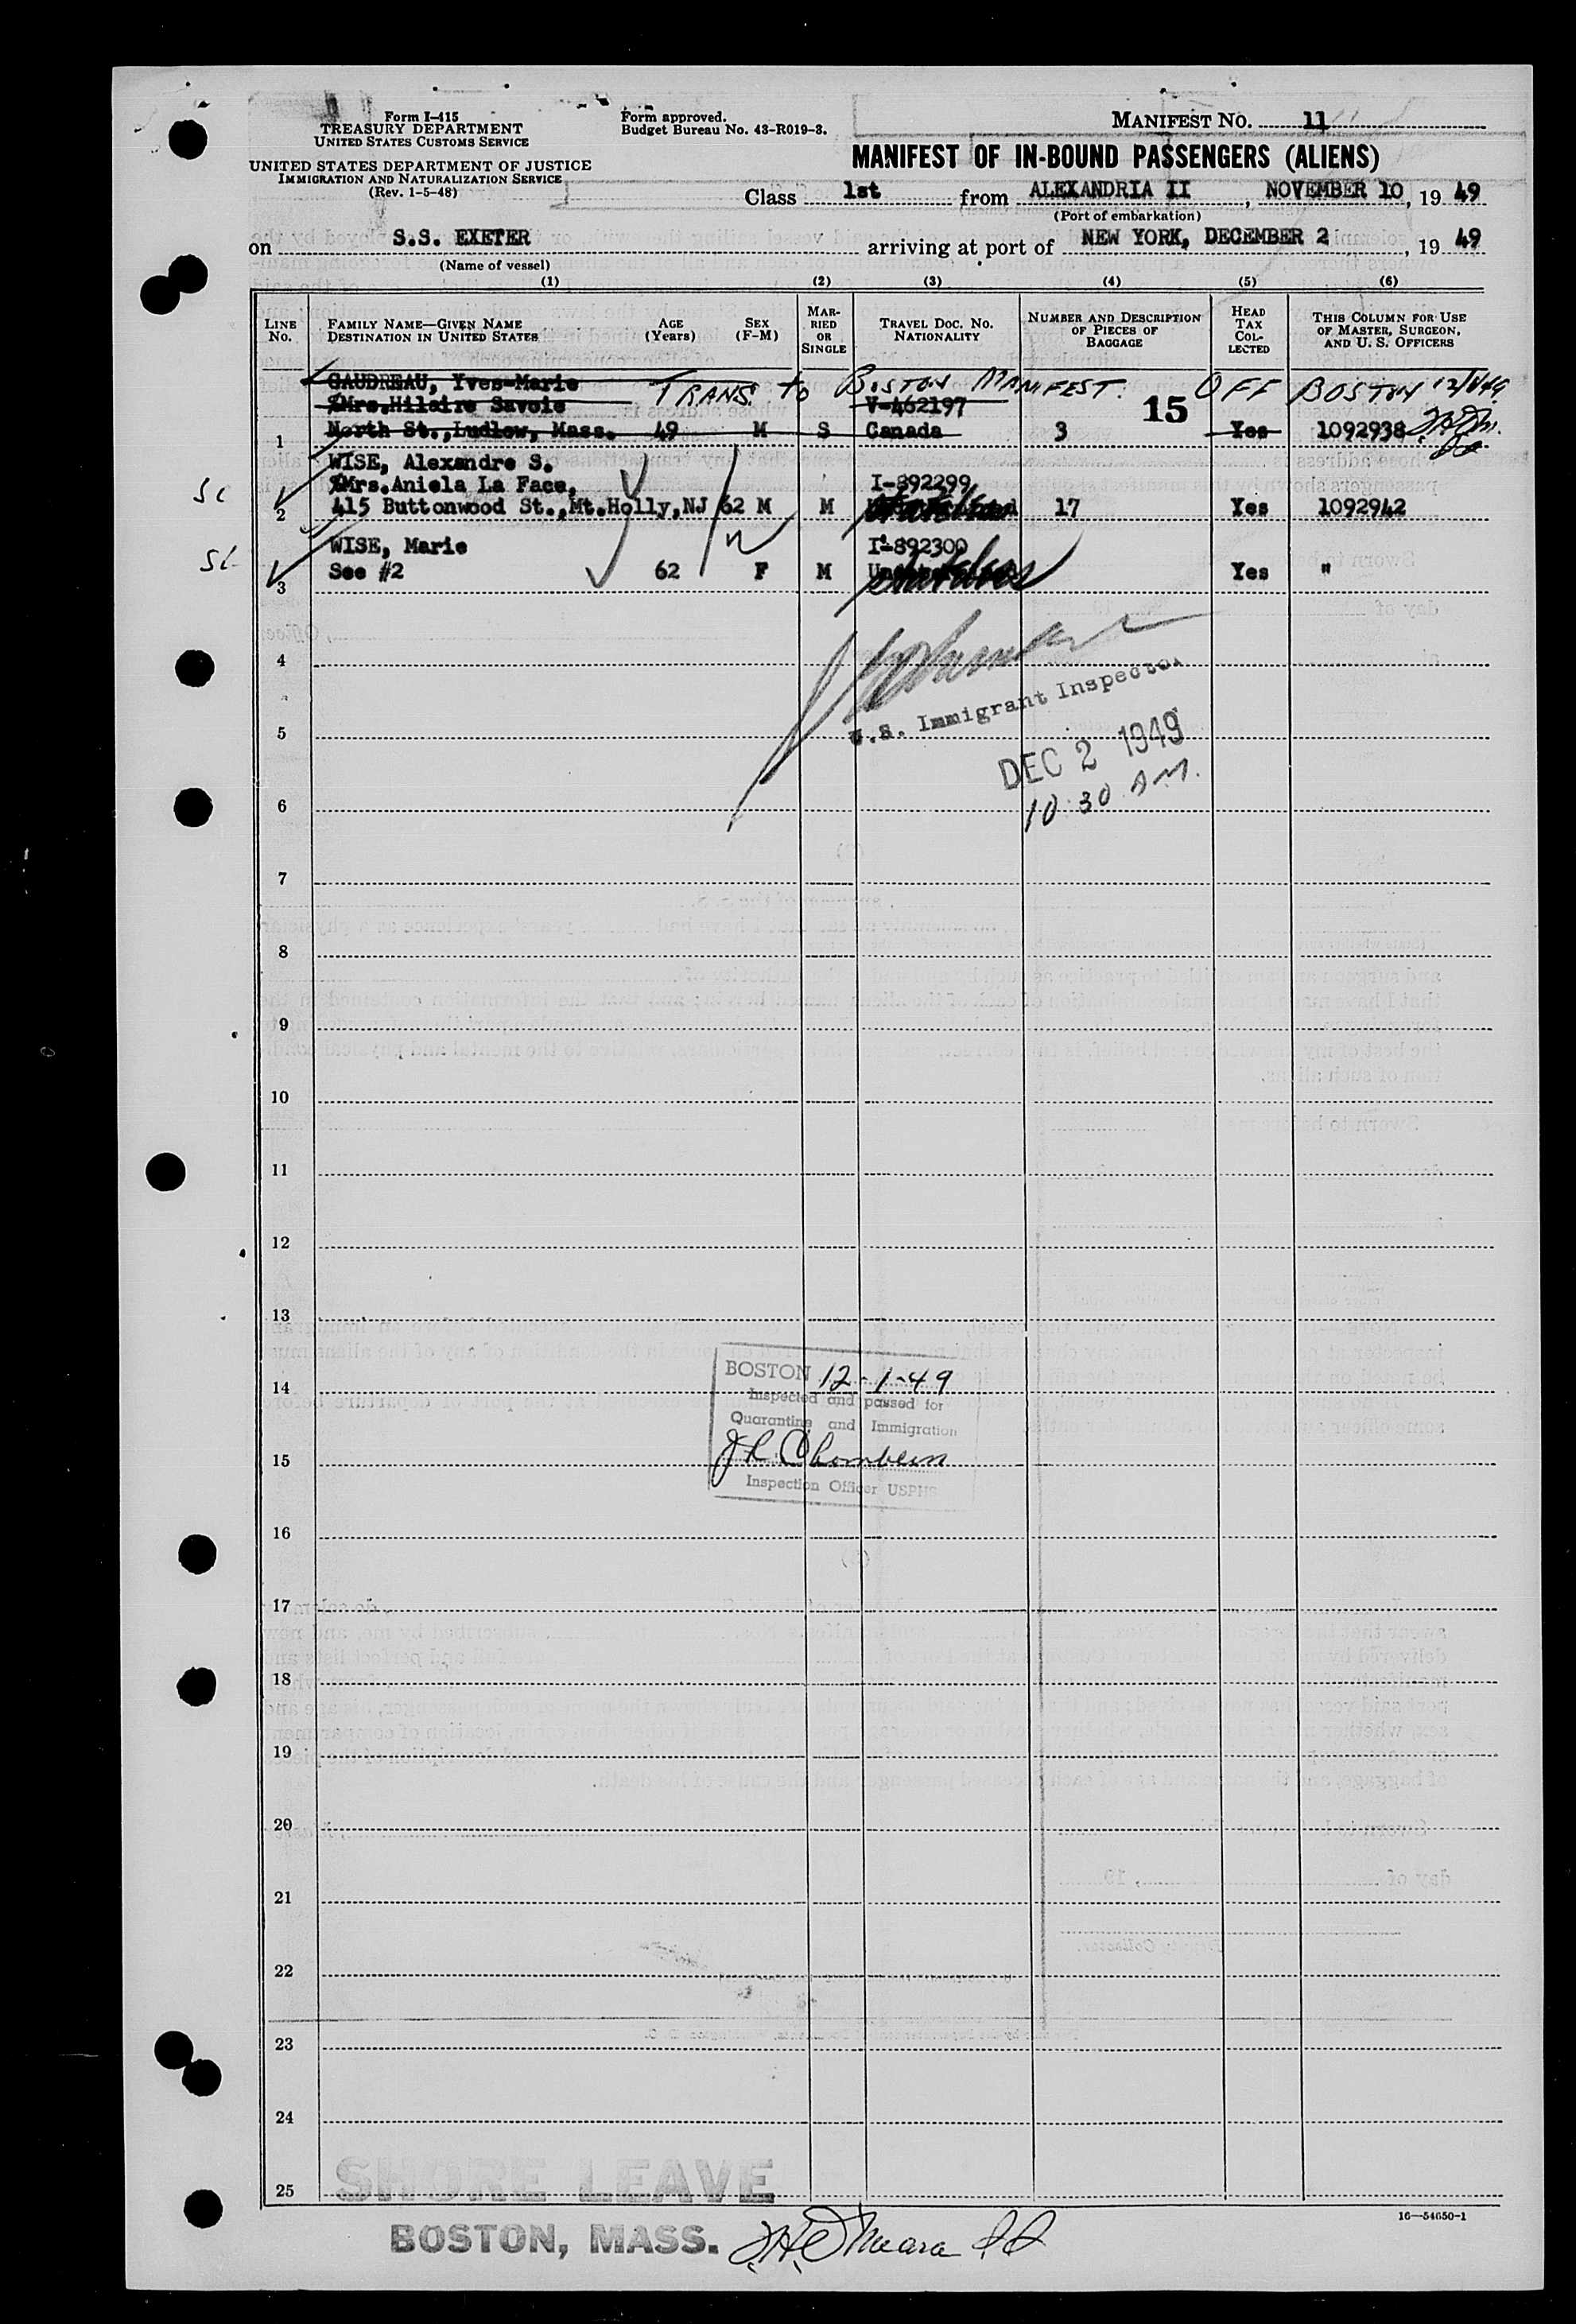 Form I-415
TREASURY DEPARTMENT
UNITED STATES CUSTOMS SERVICE
UNITED STATES DEPARTMENT OF JUSTICE
IMMIGRATION AND NATURALIZATION SERVICE
(Rev. 1-5-48)
Form approved.
Budget Bureau No. 43-R019-3.
MANIFEST NO. 11
MANIFEST OF IN-BOUND PASSENGERS (ALIENS)
Class 1st from ALEXANDRIA II, NOVEMBER 10, 19 49
(Port of embarkation)
on S.S. EXETER arriving at port of NEW YORK, DECEMBER 2, 19 49
(Name of vessel)
(1) (2) (3) (4) (5) (6)
LINE NO.
FAMILY NAME—GIVEN NAME
DESTINATION IN UNITED STATES
AGE (Years)
SEX (F-M)
MARRIED OR SINGLE
TRAVEL DOC. NO. NATIONALITY
NUMBER AND DESCRIPTION OF PIECES OF BAGGAGE
HEAD TAX COLLECTED
THIS COLUMN FOR USE OF MASTER, SURGEON, AND U. S. OFFICERS
GAUDREAU, Yves-Marie TRANS. to BOSTON MANIFEST. OFF BOSTON 12/1/49
%Mrs.Hilaire Savoie V-462197 15
1 North St.,Ludlow, Mass. 49 M S Canada 3 Yes 1092938
WISE, Alexandre S.
SC %Mrs.Aniela La Face, I-892299
2 415 Buttonwood St.,Mt.Holly,NJ 62 M M 17 Yes 1092942
WISE, Marie I-892300
SC
3 See #2 62 F M Yes "
4
U.S. Immigrant Inspector
5
DEC 2 1949
10:30 AM.
6
7
8
9
10
11
12
13
BOSTON 12-1-49
14
Inspected and passed for
Quarantine and Immigration
J R Chamblin
15
Inspection Officer USPHS
16
17
18
19
20
21
22
23
24
25
SHORE LEAVE
BOSTON, MASS.
16—54650-1